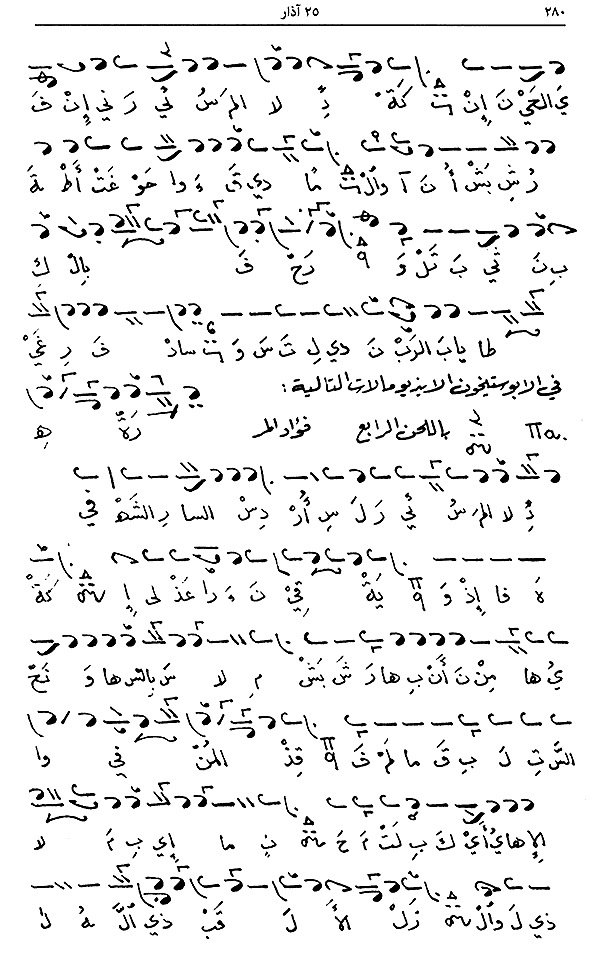 ٢٨٠ ٢٥ آذار
يَ الحَيْ نَ إِنْ كَةْ لا المَر سُ ئي رَ ني إِنْ فَ
رُ شِ بَشْ أُ نَ آ وَالْ مُا دي قَ ءَ وا حَوْ غَتْ أَطْ
بِ نَ ثي بَ تَلْ وَ رَحْ فَ بِالْ كِ
طا يابَ الرَبْ نَ دي لِ تَ سَ وَ سادْ فَ رِ غَيْ
في الابوستيخون الايذيومالات التالية:
باللحن الرابع فؤاد المر رَةٌ هِ
دِ لا المَر سُ ئي رَ لَ سِ أُرْ دِسْ السا رِ الشَهْ في
ةَ فا إِذْ وَ يَةْ قِيْ نَ ءَ را عَذْ لى إِ كَةْ
يُ ها مِنْ نَ أَنْ بِ ها رَ شَ بَشْ مِ لا سَ بِالسْ ها وَ نَحْ
التَرْ تِ لَ بِ قَ ما لَمْ قِذْ المُنْ في وا
الإِ هايُ أَيْ كَ بِ لَتْ مَ حَ نِ ما إِي بِ مَ لا
ذي لَ وَالْ زَلْ الأَ لَ قَبْ ذي الَّ هُ لَ